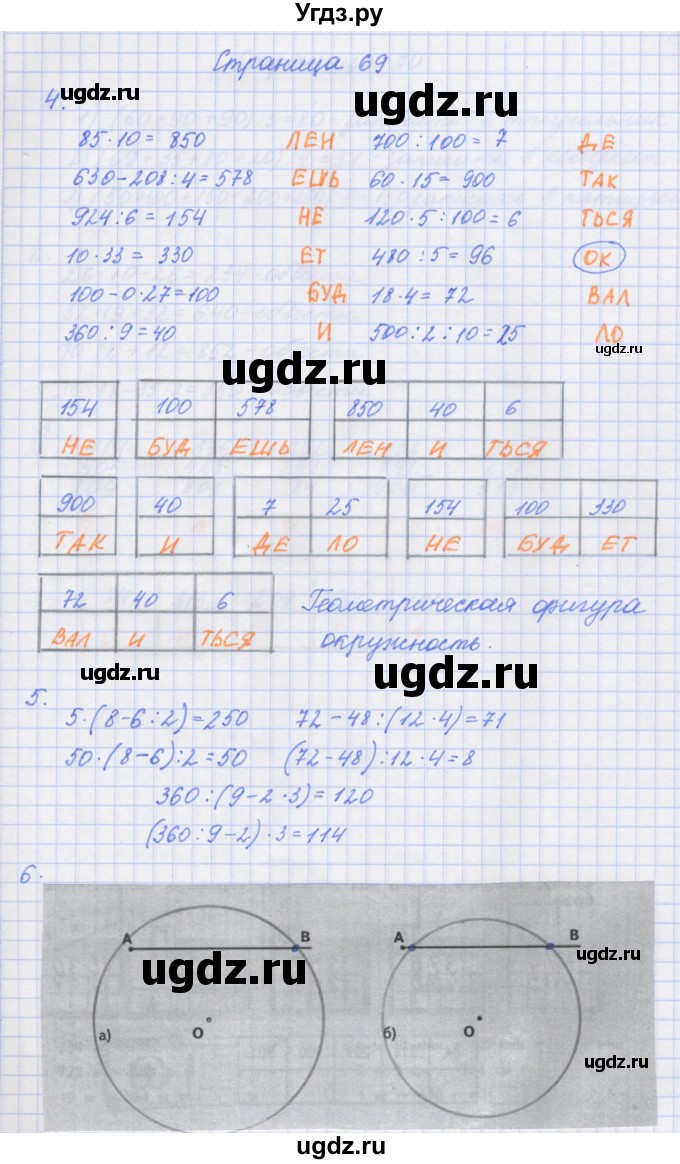 Угдз.ру
Страница 69
4.
ugdz.ru
ugdz.ru
85·10 = 850 ЛЕН 700:100 = 7 ДЕ
630-208:4=578 ЕШЬ 60·15=900 ТАК
924:6=154 НЕ 120·5:100=6 ТЬСЯ
10·33 = 330 ЕТ 480:5=96 ОК
100-0·27=100 БУД 18·4=72 ВАЛ
360:9=40 И 500:2:10=25 ЛО
ugdz.ru
ugdz.ru
154 100 578 850 40 6
НЕ БУД ЕШЬ ЛЕН И ТЬСЯ
900 40 7 25 154 100 330
ТАК И ДЕ ЛО НЕ БУД ЕТ
72 40 6 Геометрическая фигура
ВАЛ И ТЬСЯ окружность.
ugdz.ru
ugdz.ru
5.
5·(8-6:2)=250 72-48:(12·4)=71
50·(8-6):2=50 (72-48):12·4=8
360:(9-2·3)=120
(360:9-2)·3=114
6.
A B A B
ugdz.ru
ugdz.ru
а) O б) O
ugdz.ru
ugdz.ru